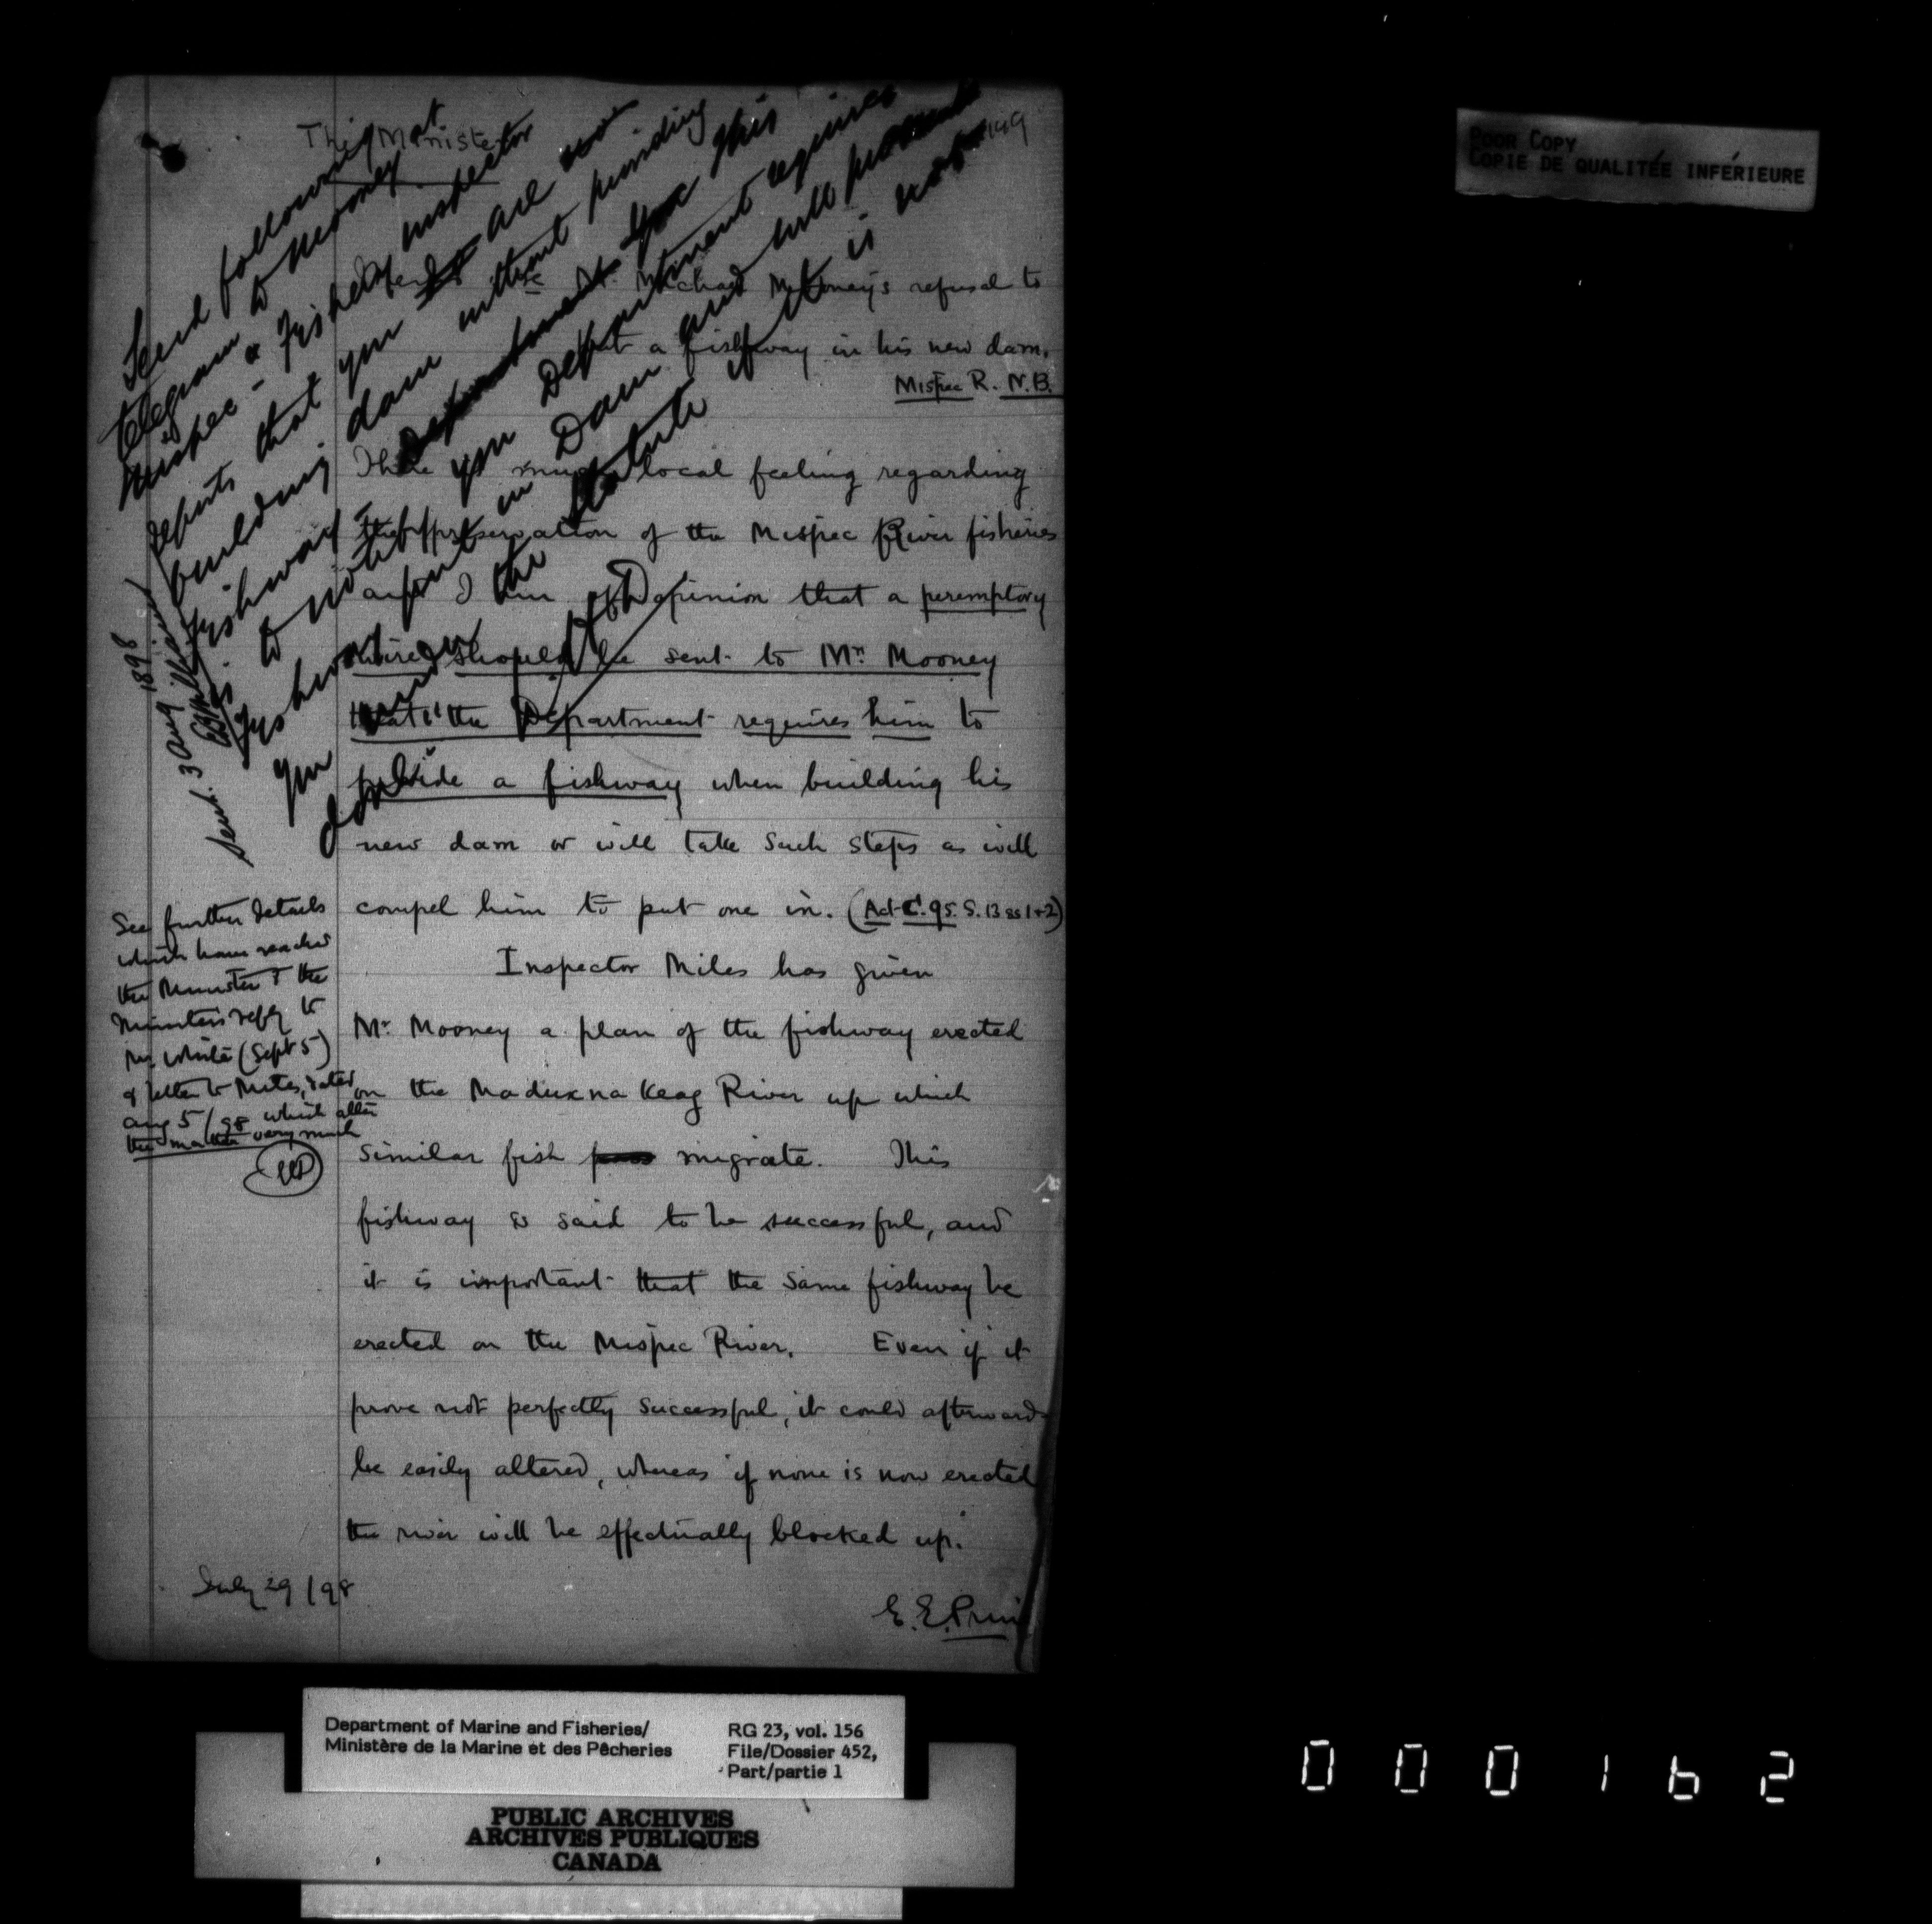 The Minister
149
Re Mr. Michael Mooney's refusal to
put a fishway in his new dam.
Mispec R. N.B.
There is much local feeling regarding
the preservation of the Mispec River fisheries
and I am of opinion that a peremptory
wire should be sent to Mr. Mooney
that the Department requires him to
provide a fishway when building his
new dam or will take such steps as will
compel him to put one in. (Act C. 95. S. 13 ss 1+2)
Inspector Miles has given
Mr. Mooney a plan of the fishway erected
on the Maduxnakeag River up which
similar fish pass migrate. This
fishway is said to be successful, and
it is important that the same fishway be
erected on the Mispec River. Even if it
prove not perfectly successful, it could afterwards
be easily altered, whereas if none is now erected
the river will be effectually blocked up.
July 29/98
E. E. Prin
Send following
telegram to Mooney
Mispec - Fisheries inspector
reports that you are
building dam without providing
fishway. Department this
is to notify you Department requires
fishway put in Dam and will
you under the statute if it is not
done
LHD
Sent. 3 Aug 1898
See further details
which have reached
the Minister & the
Minister's reply to
Mr. White (Sept 5)
& letter to Miles, dated
Aug 5/98 which alter
the matter very much
EEP
POOR COPY
COPIE DE QUALITÉE INFÉRIEURE
Department of Marine and Fisheries/
Ministère de la Marine et des Pêcheries
RG 23, vol. 156
File/Dossier 452,
Part/partie 1
PUBLIC ARCHIVES
ARCHIVES PUBLIQUES
CANADA
000162